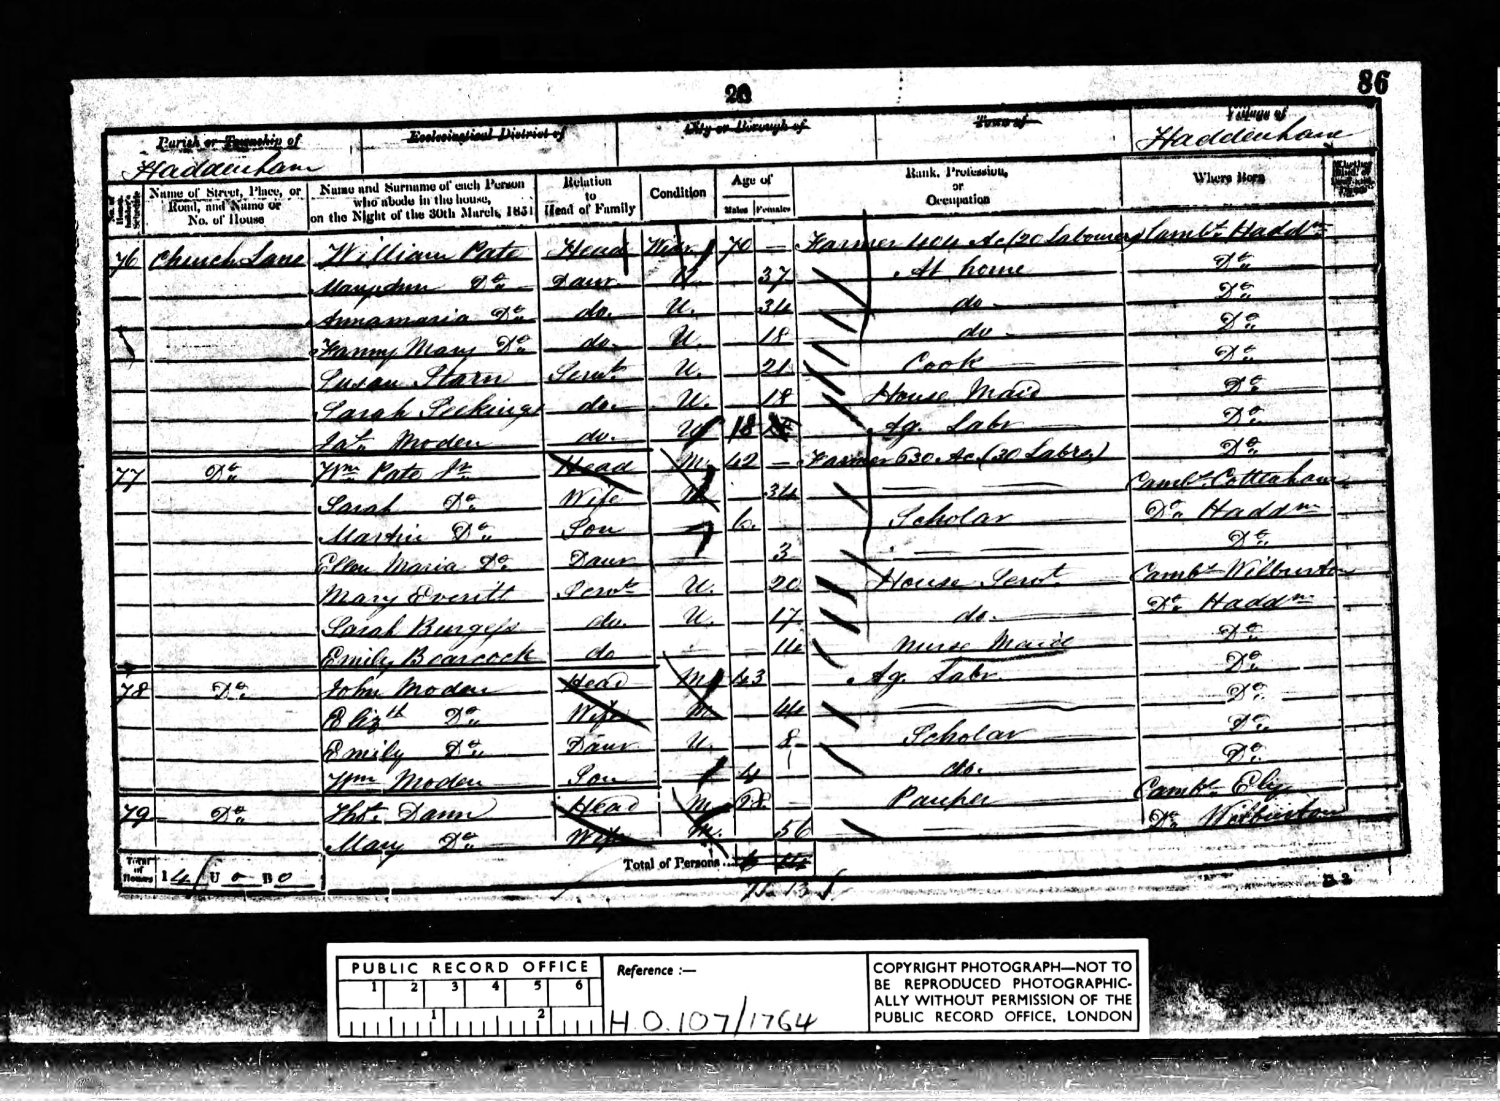 20
86
Parish or Township of
Ecclesiastical District of
City or Borough of
Town of
Village of
Haddenham
Haddenham
Name of Street, Place, or Road, and Name or No. of House
Name and Surname of each Person who abode in the house, on the Night of the 30th March, 1851
Relation to Head of Family
Condition
Age of
Males Females
Rank, Profession, or Occupation
Where Born
76 Church Lane William Pate Head Widr 70 — Farmer 404 Ac (20 Labourers) Cambs. Haddm
Do Daur U. 37 At home Do
Annamaria Do do. U. 34 do Do
Fanny Mary Do do. U. 18 do Do
Susan Starn Servt. U. 21 Cook Do
Sarah Seekings do. U. 18 House Maid Do
Jas. Moden do. U 18 Ag. Labr Do
77 Do Wm Pate Jr Head M. 42 — Farmer 630 Ac (30 Labrs) Do
Sarah Do Wife M 34 Cambs. Cottenham
Martin Do Son 6. Scholar Do Haddm
Ellen Maria Do Daur 3 Do
Mary Everitt Servt U. 20 House Servt. Cambs Wilburton
Sarah Burgess do. U. 17 do. Do Haddm
Emily Bearcock do 14 Nurse Maid Do
78 Do John Moden Head M 43 Ag. Labr Do
Elizth Do Wife M. 44 Do
Emily Do Daur U. 8 Scholar Do
Wm Moden Son 4 do. Do
79 Do Thos. Dann Head M Pauper Cambs. Ely
Mary Do Wife M. 56 Do Wilburton
Total of Houses 14 U 0 B 0
Total of Persons...
7 13
B 2
PUBLIC RECORD OFFICE
1 2 3 4 5 6
1 2
Reference :—
H.O.107/1764
COPYRIGHT PHOTOGRAPH—NOT TO
BE REPRODUCED PHOTOGRAPHIC-
ALLY WITHOUT PERMISSION OF THE
PUBLIC RECORD OFFICE, LONDON